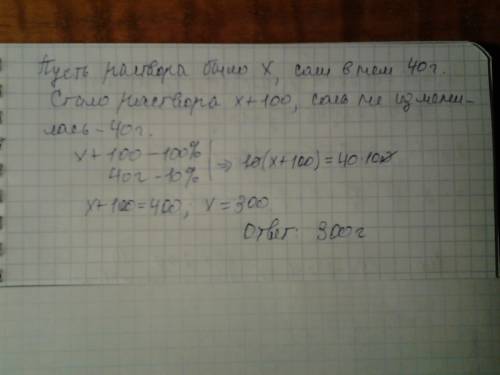 Пусть раствора было x, соли в нем 40г.
Стало раствора x+100, соль не измени-
лась - 40г.
x+100 - 100%
40г - 10% ⇒ 10(x+100) = 40·100
x+100=400, x=300
Ответ: 300г